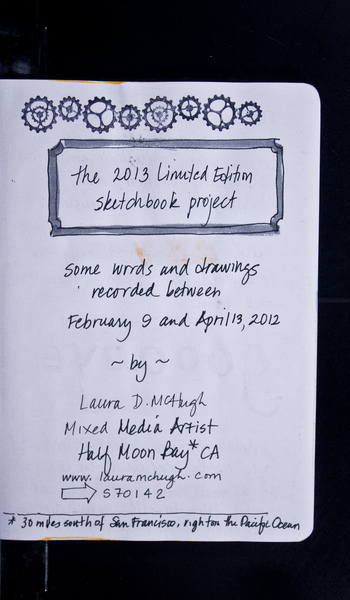 the 2013 Limited Edition
sketchbook project
some words and drawings
recorded between
February 9 and April 13, 2012
~ by ~
Laura D. McHugh
Mixed Media Artist
Half Moon Bay* CA
www.lauramchugh.com
S70142
* 30 miles south of San Francisco, right on the Pacific Ocean